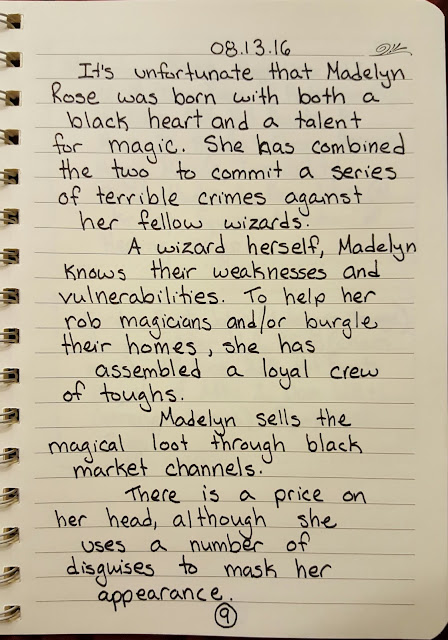 08.13.16
It's unfortunate that Madelyn
Rose was born with both a
black heart and a talent
for magic. She has combined
the two to commit a series
of terrible crimes against
her fellow wizards.
A wizard herself, Madelyn
knows their weaknesses and
vulnerabilities. To help her
rob magicians and/or burgle
their homes, she has
assembled a loyal crew
of toughs.
Madelyn sells the
magical loot through black
market channels.
There is a price on
her head, although she
uses a number of
disguises to mask her
appearance.
9